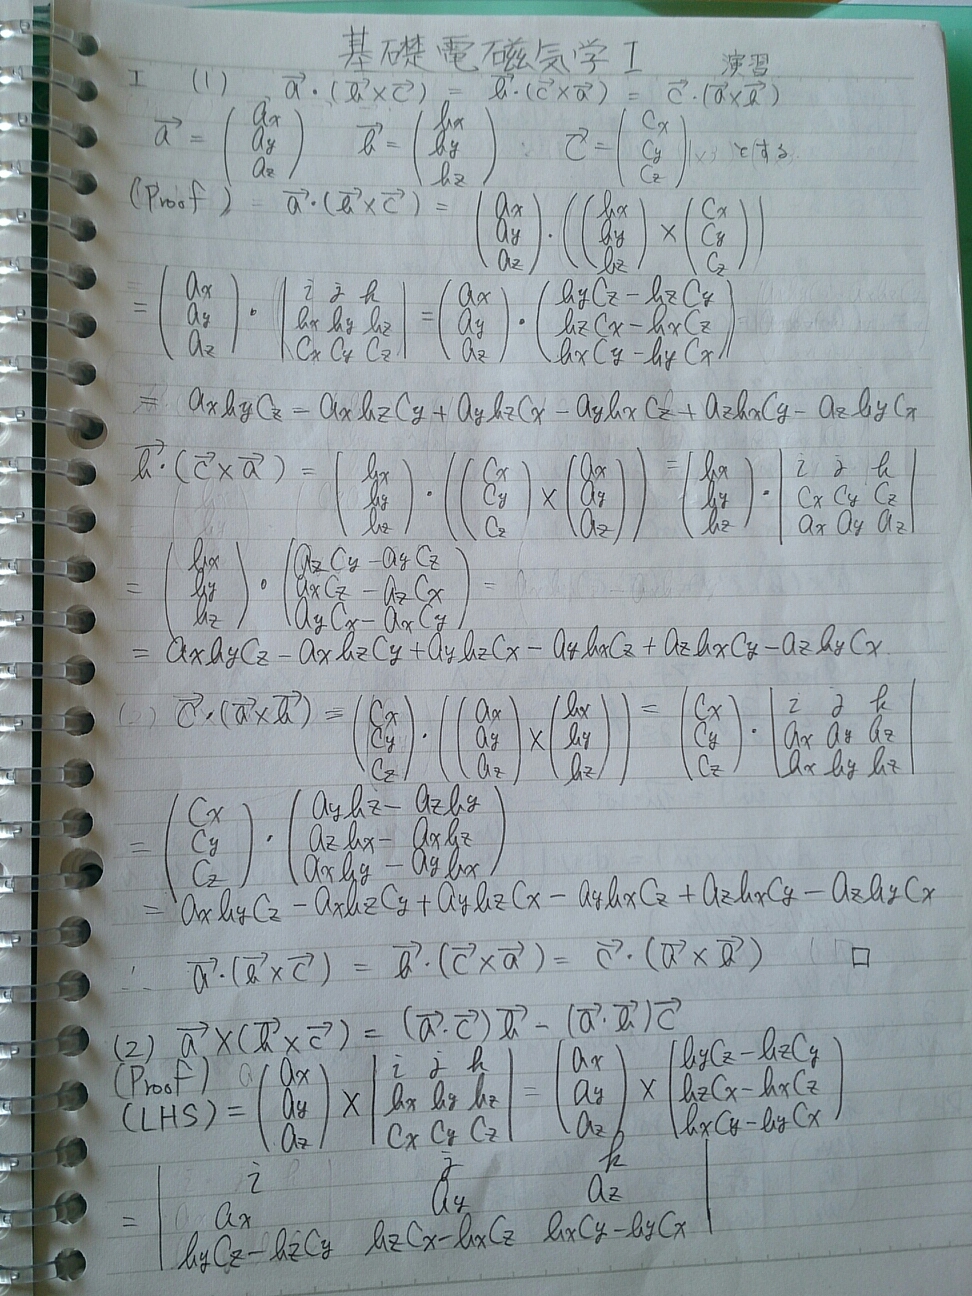 基礎電磁気学I 演習
I (1) a⃗·(b⃗×c⃗) = b⃗·(c⃗×a⃗) = c⃗·(a⃗×b⃗)
a⃗ = (ax ay az) b⃗ = (bx by bz) c⃗ = (cx cy cz) とする
(Proof) = a⃗·(b⃗×c⃗) = (ax ay az)·((bx by bz)×(cx cy cz))
= (ax ay az)·|i j k bx by bz cx cy cz| = (ax ay az)·(bycz−bzcy bzcx−bxcz bxcy−bycx)
= axbycz − axbzcy + aybzcx − aybxcz + azbxcy − azbycx
b⃗·(c⃗×a⃗) = (bx by bz)·((cx cy cz)×(ax ay az)) = (bx by bz)·|i j k cx cy cz ax ay az|
= (bx by bz)·(azcy−aycz axcz−azcx aycx−axcy) =
= axbycz − axbzcy + aybzcx − aybxcz + azbxcy − azbycx
c⃗·(a⃗×b⃗) = (cx cy cz)·((ax ay az)×(bx by bz)) = (cx cy cz)·|i j k ax ay az bx by bz|
= (cx cy cz)·(aybz−azby azbx−axbz axby−aybx)
= axbycz − axbzcy + aybzcx − aybxcz + azbxcy − azbycx
∴ a⃗·(b⃗×c⃗) = b⃗·(c⃗×a⃗) = c⃗·(a⃗×b⃗) □
(2) a⃗×(b⃗×c⃗) = (a⃗·c⃗)b⃗ − (a⃗·b⃗)c⃗
(Proof)
(LHS) = (ax ay az) × |i j k bx by bz cx cy cz| = (ax ay az) × (bycz−bzcy bzcx−bxcz bxcy−bycx)
= |i j k ax ay az bycz−bzcy bzcx−bxcz bxcy−bycx|